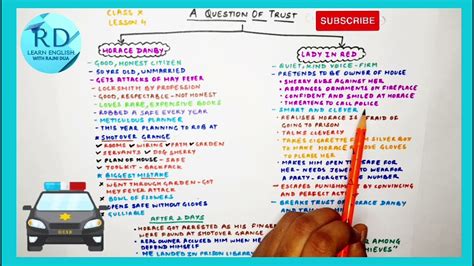 RD
LEARN ENGLISH
WITH RAJNI DUA
CLASS X
LESSON 4
A QUESTION OF TRUST
SUBSCRIBE
HORACE DANBY
- GOOD, HONEST CITIZEN
- 50 YRS OLD, UNMARRIED
- GETS ATTACKS OF HAY FEVER
- LOCKSMITH BY PROFESSION
- GOOD, RESPECTABLE - NOT HONEST
- LOVES RARE, EXPENSIVE BOOKS
- ROBBED A SAFE EVERY YEAR
- METICULOUS PLANNER
- THIS YEAR PLANNING TO ROB AT
SHOTOVER GRANGE
ROOMS WIRING PATH GARDEN
SERVANTS DOG SHERRY
PLAN OF HOUSE
SAFE
- TOOLKIT, TABLE
BIGGEST MISTAKE
WENT THROUGH GARDEN - GOT
HEY FEVER ATTACK
BOWL OF FLOWERS
OPENS SAFE WITHOUT GLOVES
GULLIABLE
LADY IN RED
- QUIET, KIND VOICE - FIRM
- PRETENDS TO BE OWNER OF HOUSE
SHERRY RUBS AGAINST HER
ARRANGES ORNAMENTS ON FIREPLACE
CONFIDENT AND SMILED AT HORACE
THREATENS TO CALL POLICE
- SMART AND CLEVER
- REALISES HORACE IS AFRAID OF
GOING TO PRISON
- TALKS CLEVERLY
- TAKES CIGARETTE FROM SILVER BOX
TO MAKE HORACE REMOVE GLOVES
TO PLEASE HER
- MAKES HIM OPEN SAFE FOR
HER - NEEDS JEWEL TO WEAR
A PARTY - FORGETS NUMBER
- ESCAPES PUNISHMENT BY CONVINCING
AND PERFECT ACTING
- BREAKS TRUST OF HORACE DANBY
AFTER 2 DAYS
- HORACE GOT ARRESTED AS HIS
WERE FOUND AT SHOTOVER GRANGE
- REAL OWNER ACCUSED HIM WHEN
DEFEND HIMSELF
- HE LANDED IN PRISON LIBRARY
AMONG